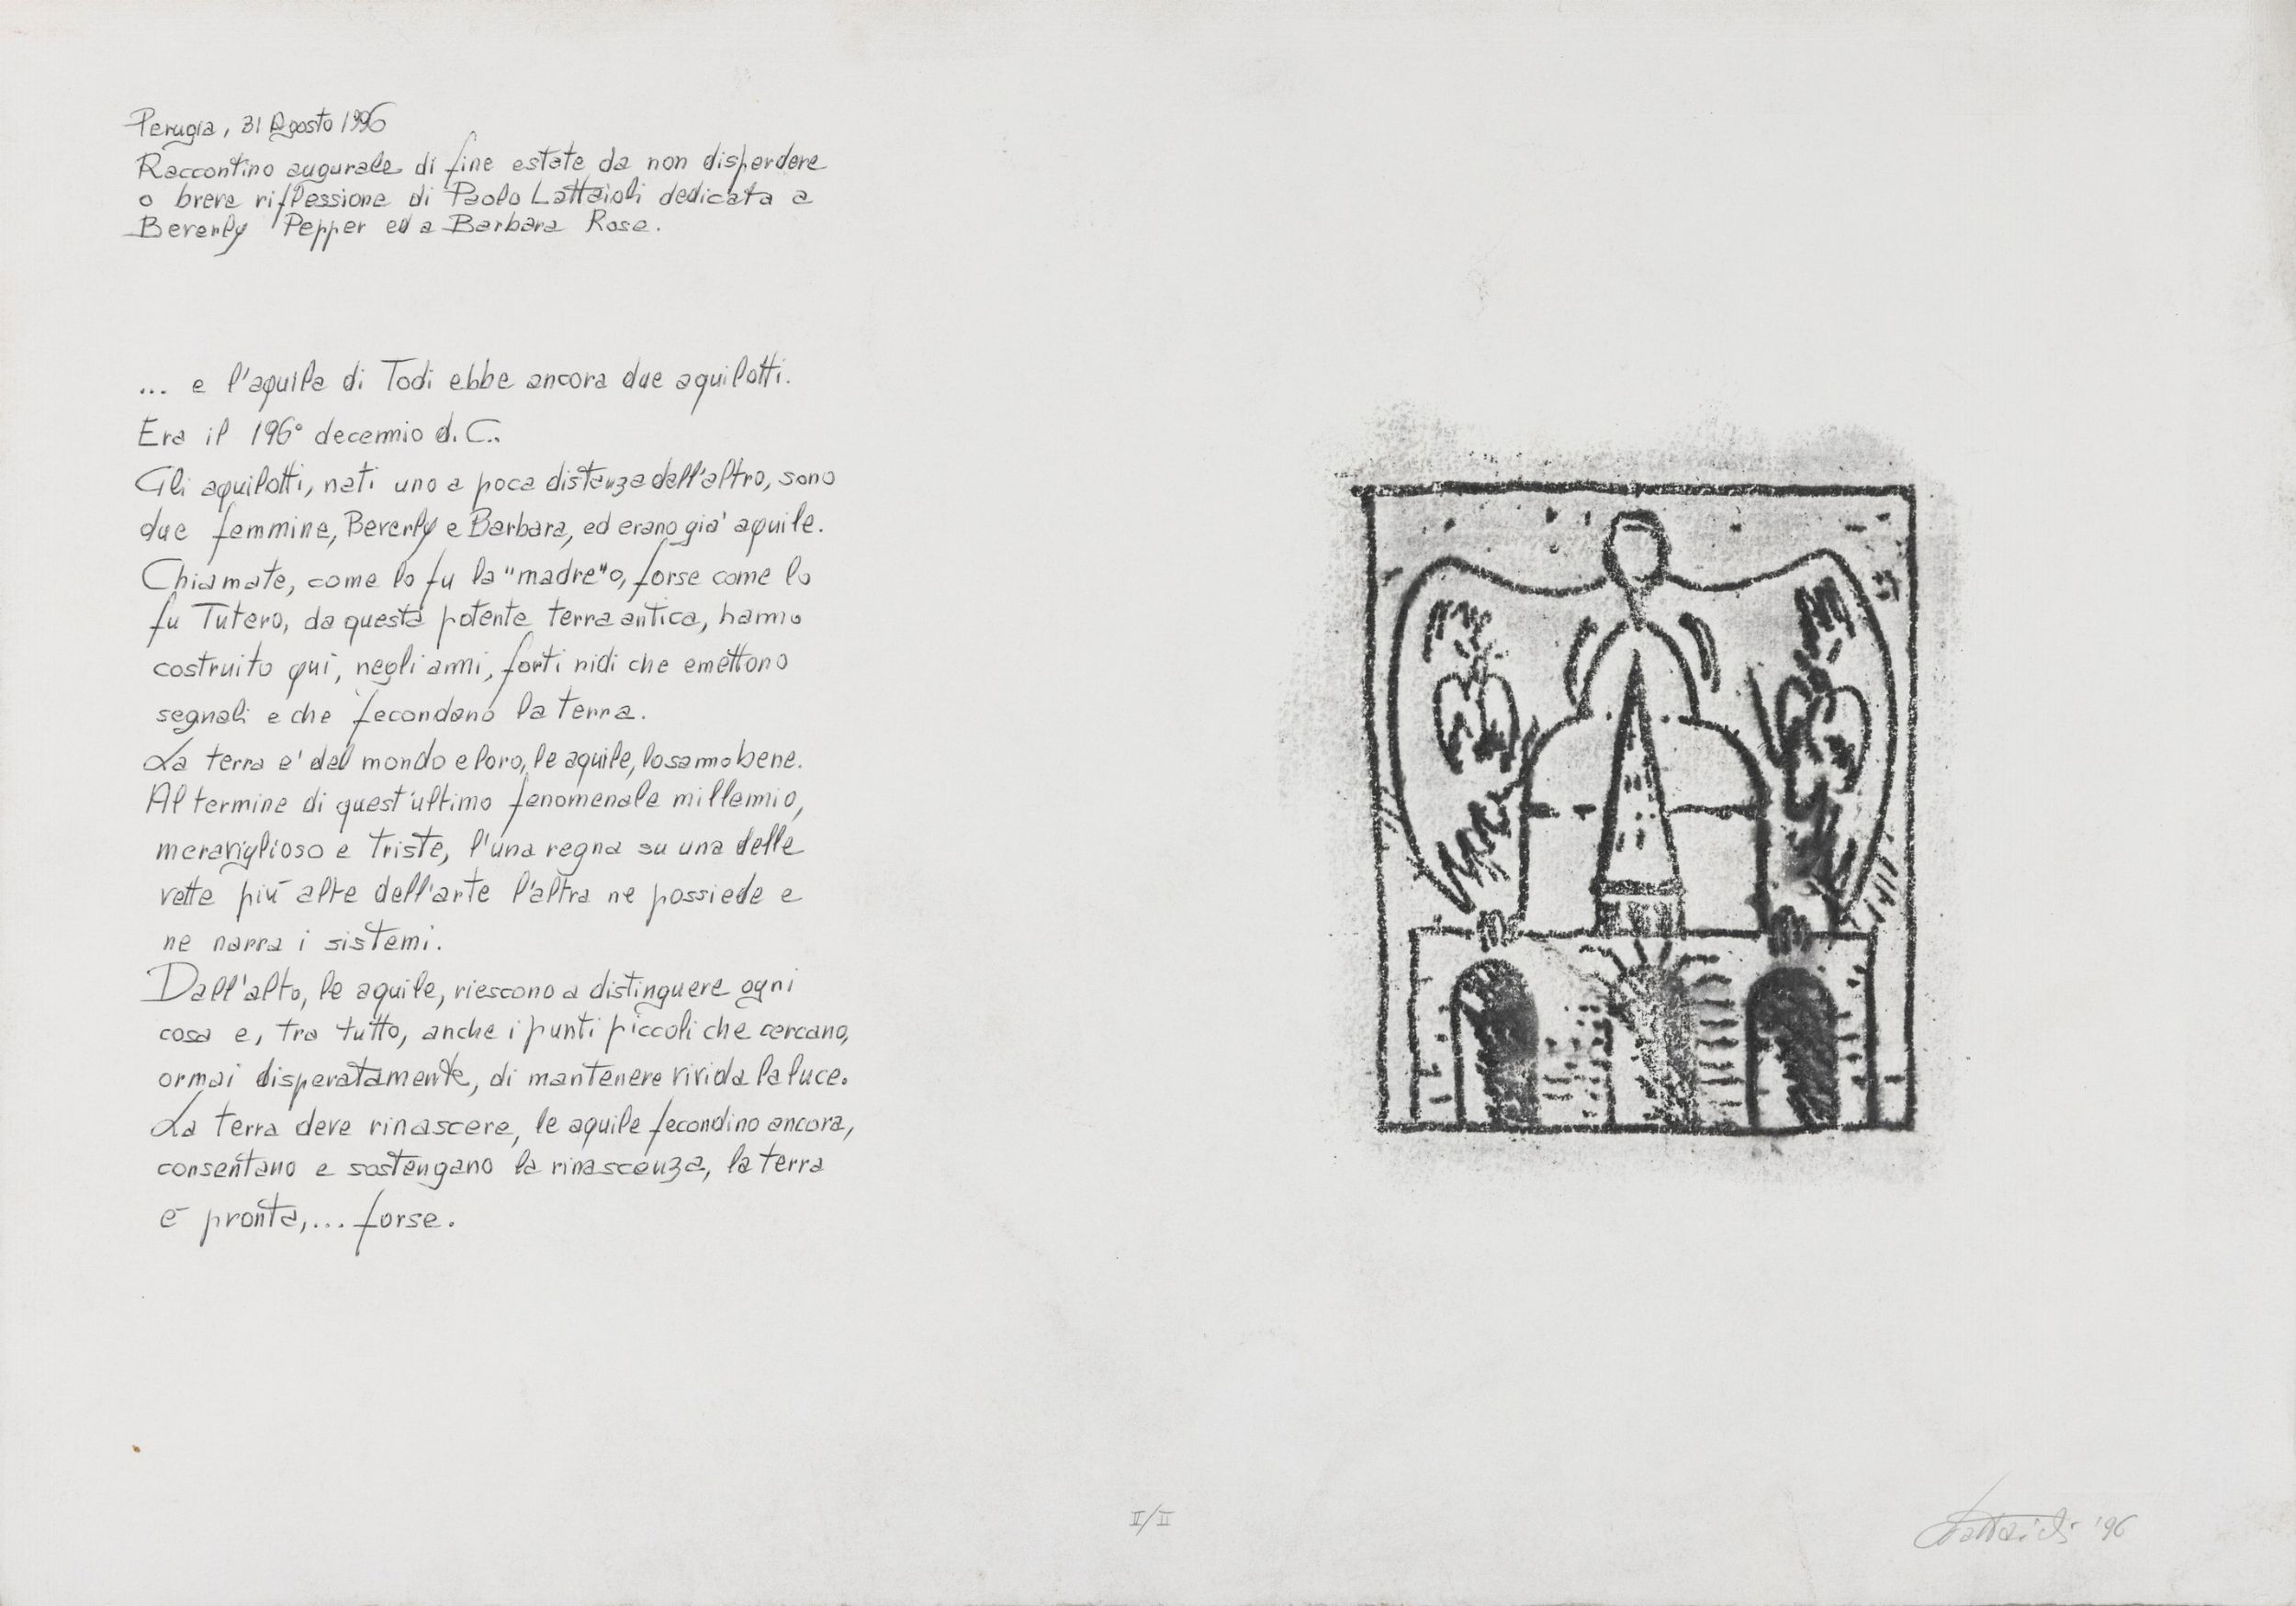 Perugia, 31 Agosto 1996
Raccontino augurale di fine estate da non disperdere
o breve riflessione di Paolo Lattaioli dedicata a
Beverly Pepper ed a Barbara Rose.
... e l'aquila di Todi ebbe ancora due aquilotti.
Era il 196° decennio d.C..
Gli aquilotti, nati uno a poca distanza dall'altro, sono
due femmine, Beverly e Barbara, ed erano gia' aquile.
Chiamate, come lo fu la "madre"o, forse come lo
fu Tutero, da questa potente terra antica, hanno
costruito quì, negli anni, forti nidi che emettono
segnali e che fecondano la terra.
La terra e' del mondo e loro, le aquile, lo sanno bene.
Al termine di quest'ultimo fenomenale millennio,
meraviglioso e triste, l'una regna su una delle
vette più alte dell'arte l'altra ne possiede e
ne narra i sistemi.
Dall'alto, le aquile, riescono a distinguere ogni
cosa e, tra tutto, anche i punti piccoli che cercano,
ormai disperatamente, di mantenere vivida la luce.
La terra deve rinascere, le aquile fecondino ancora,
consentano e sostengano la rinascenza, la terra
è pronta,... forse.
II/II
Lattaioli '96